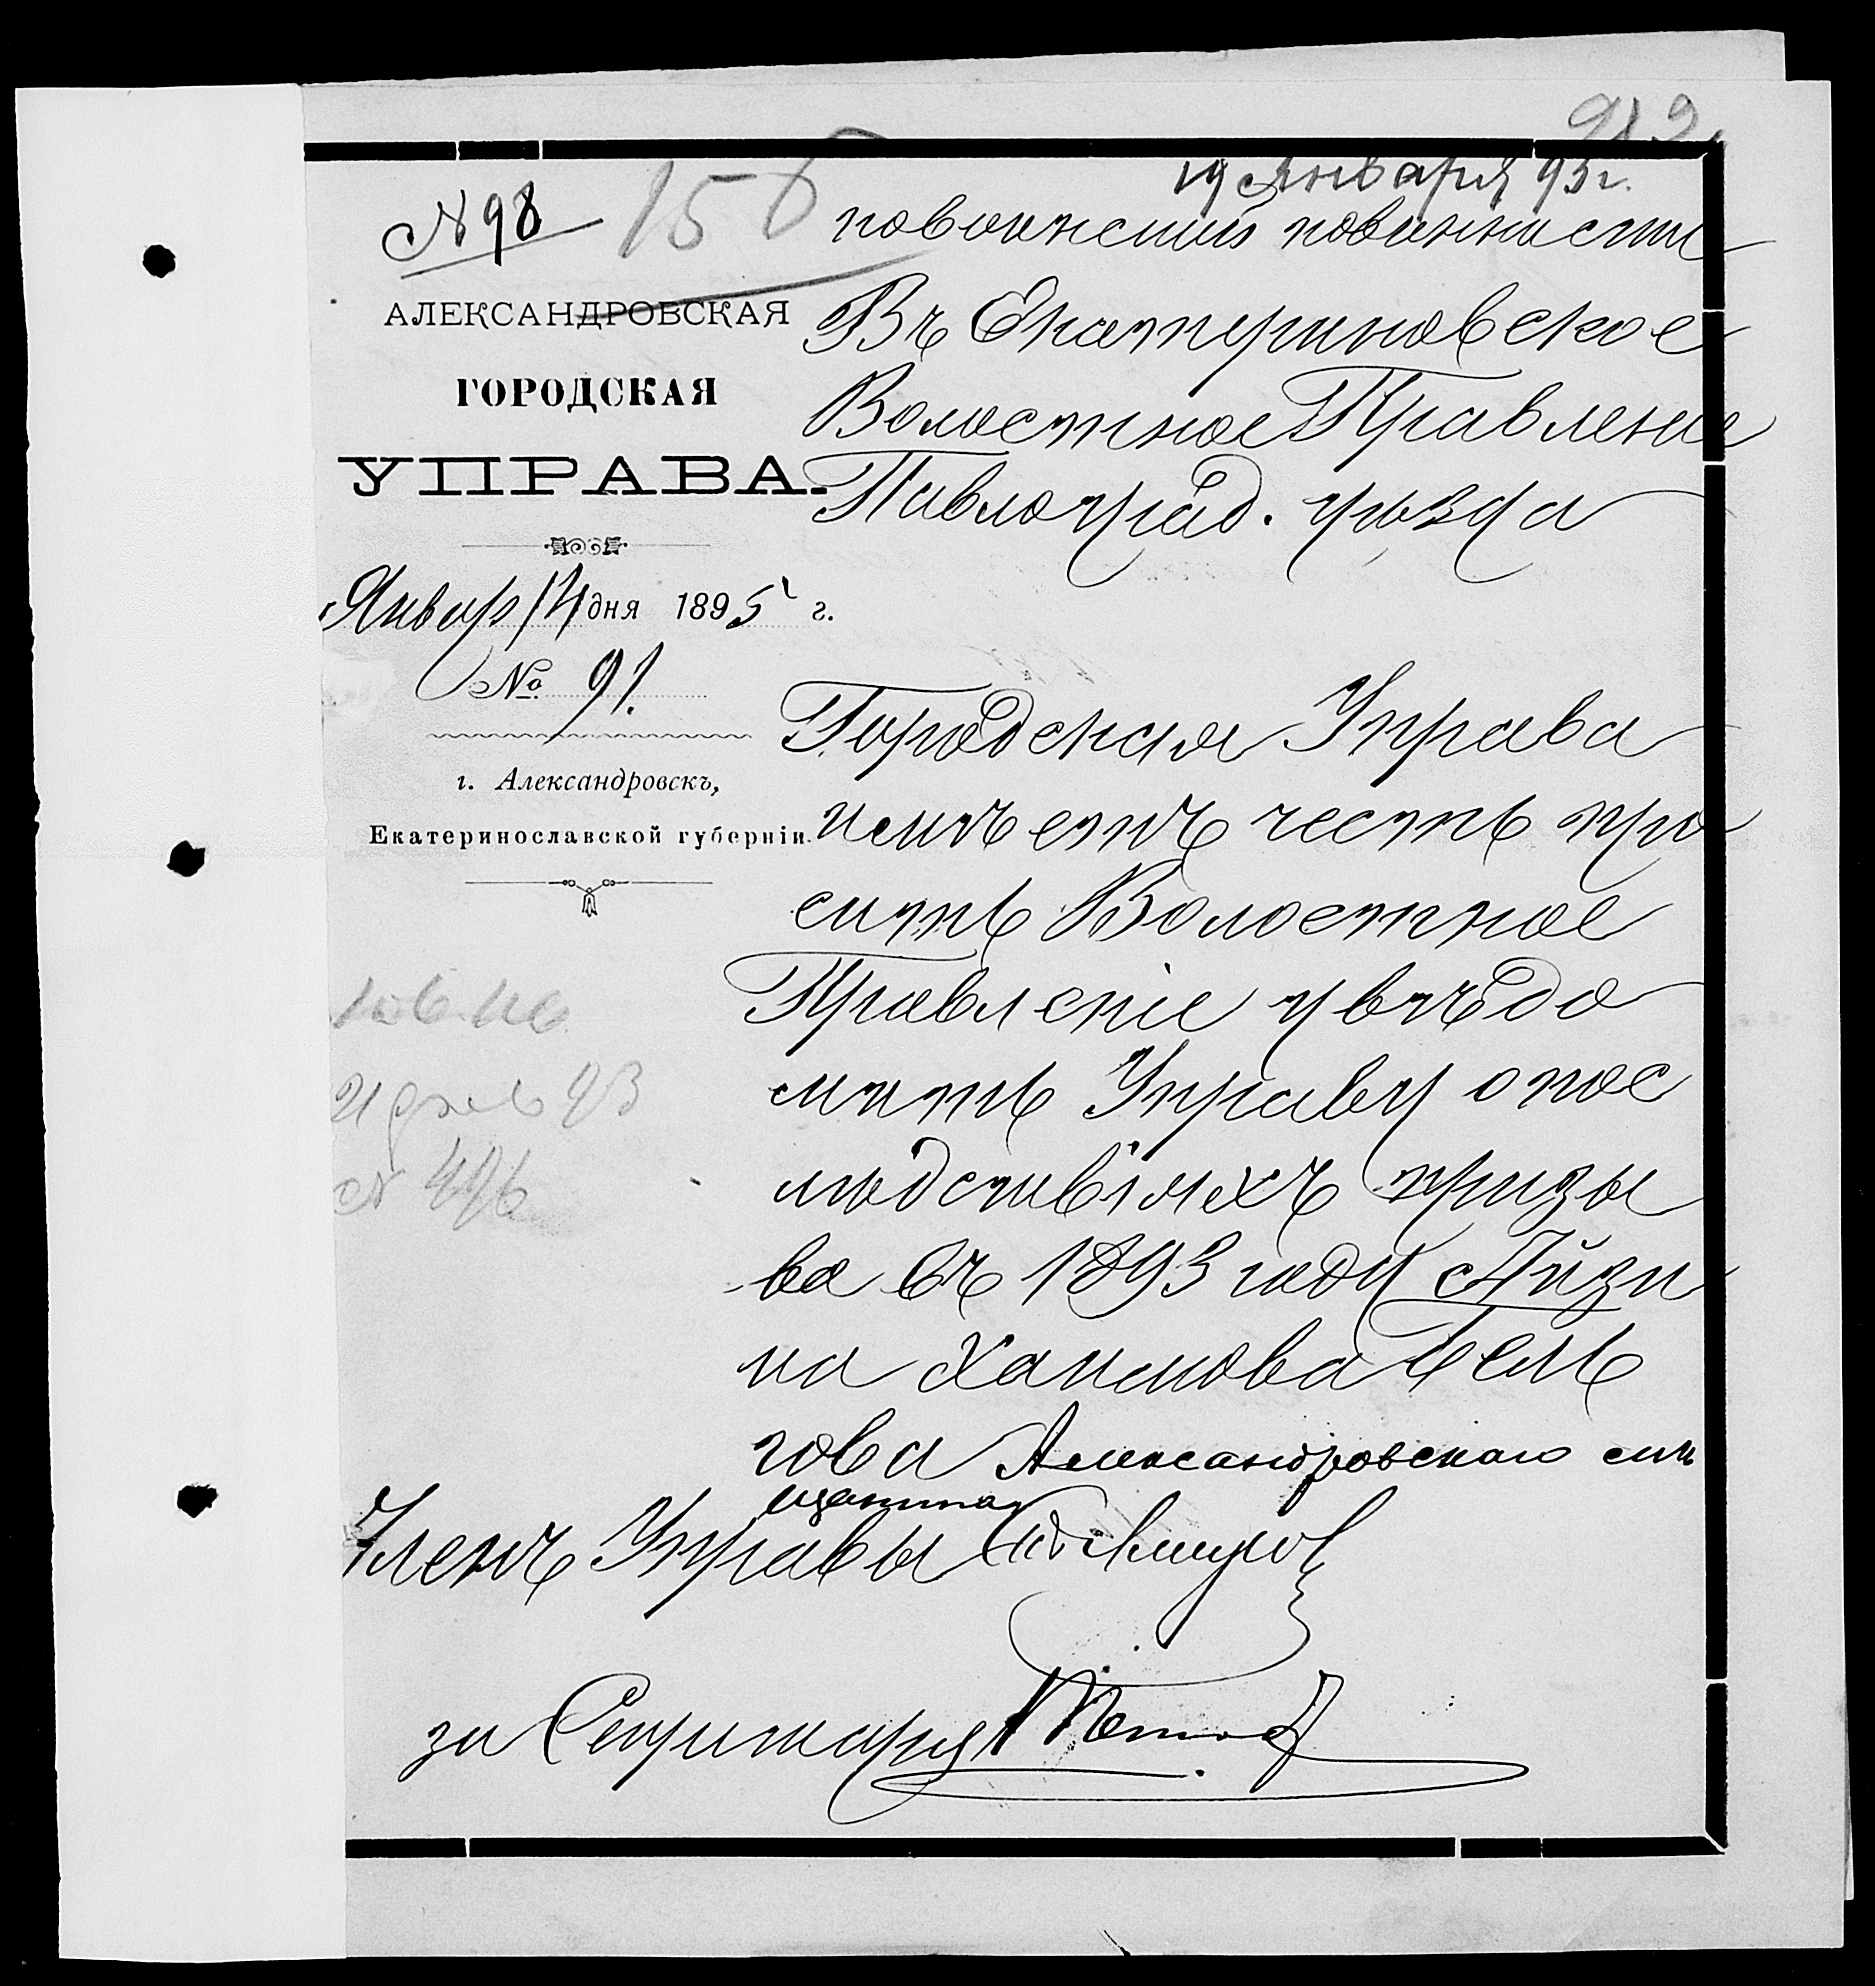 19 Января 95 г.
№ 98
156
по воинской повинности
АЛЕКСАНДРОВСКАЯ
ГОРОДСКАЯ
УПРАВА.
Январ 14 дня 1895 г.
№ 91.
г. Александровскъ,
Екатеринославской губерніи.
Въ Екатериновское
Волостное Правление
Павлоград. уѣзда
Городская Управа
имѣетъ честь про
сить Волостное
Правленіе увѣдо
мить Управу о пос
лѣдствіяхъ призы
ва въ 1893 году Айзи
ка Хаимова Гель
гова Александровскаго мѣ
щанина
Членъ Управы
за Секретаря